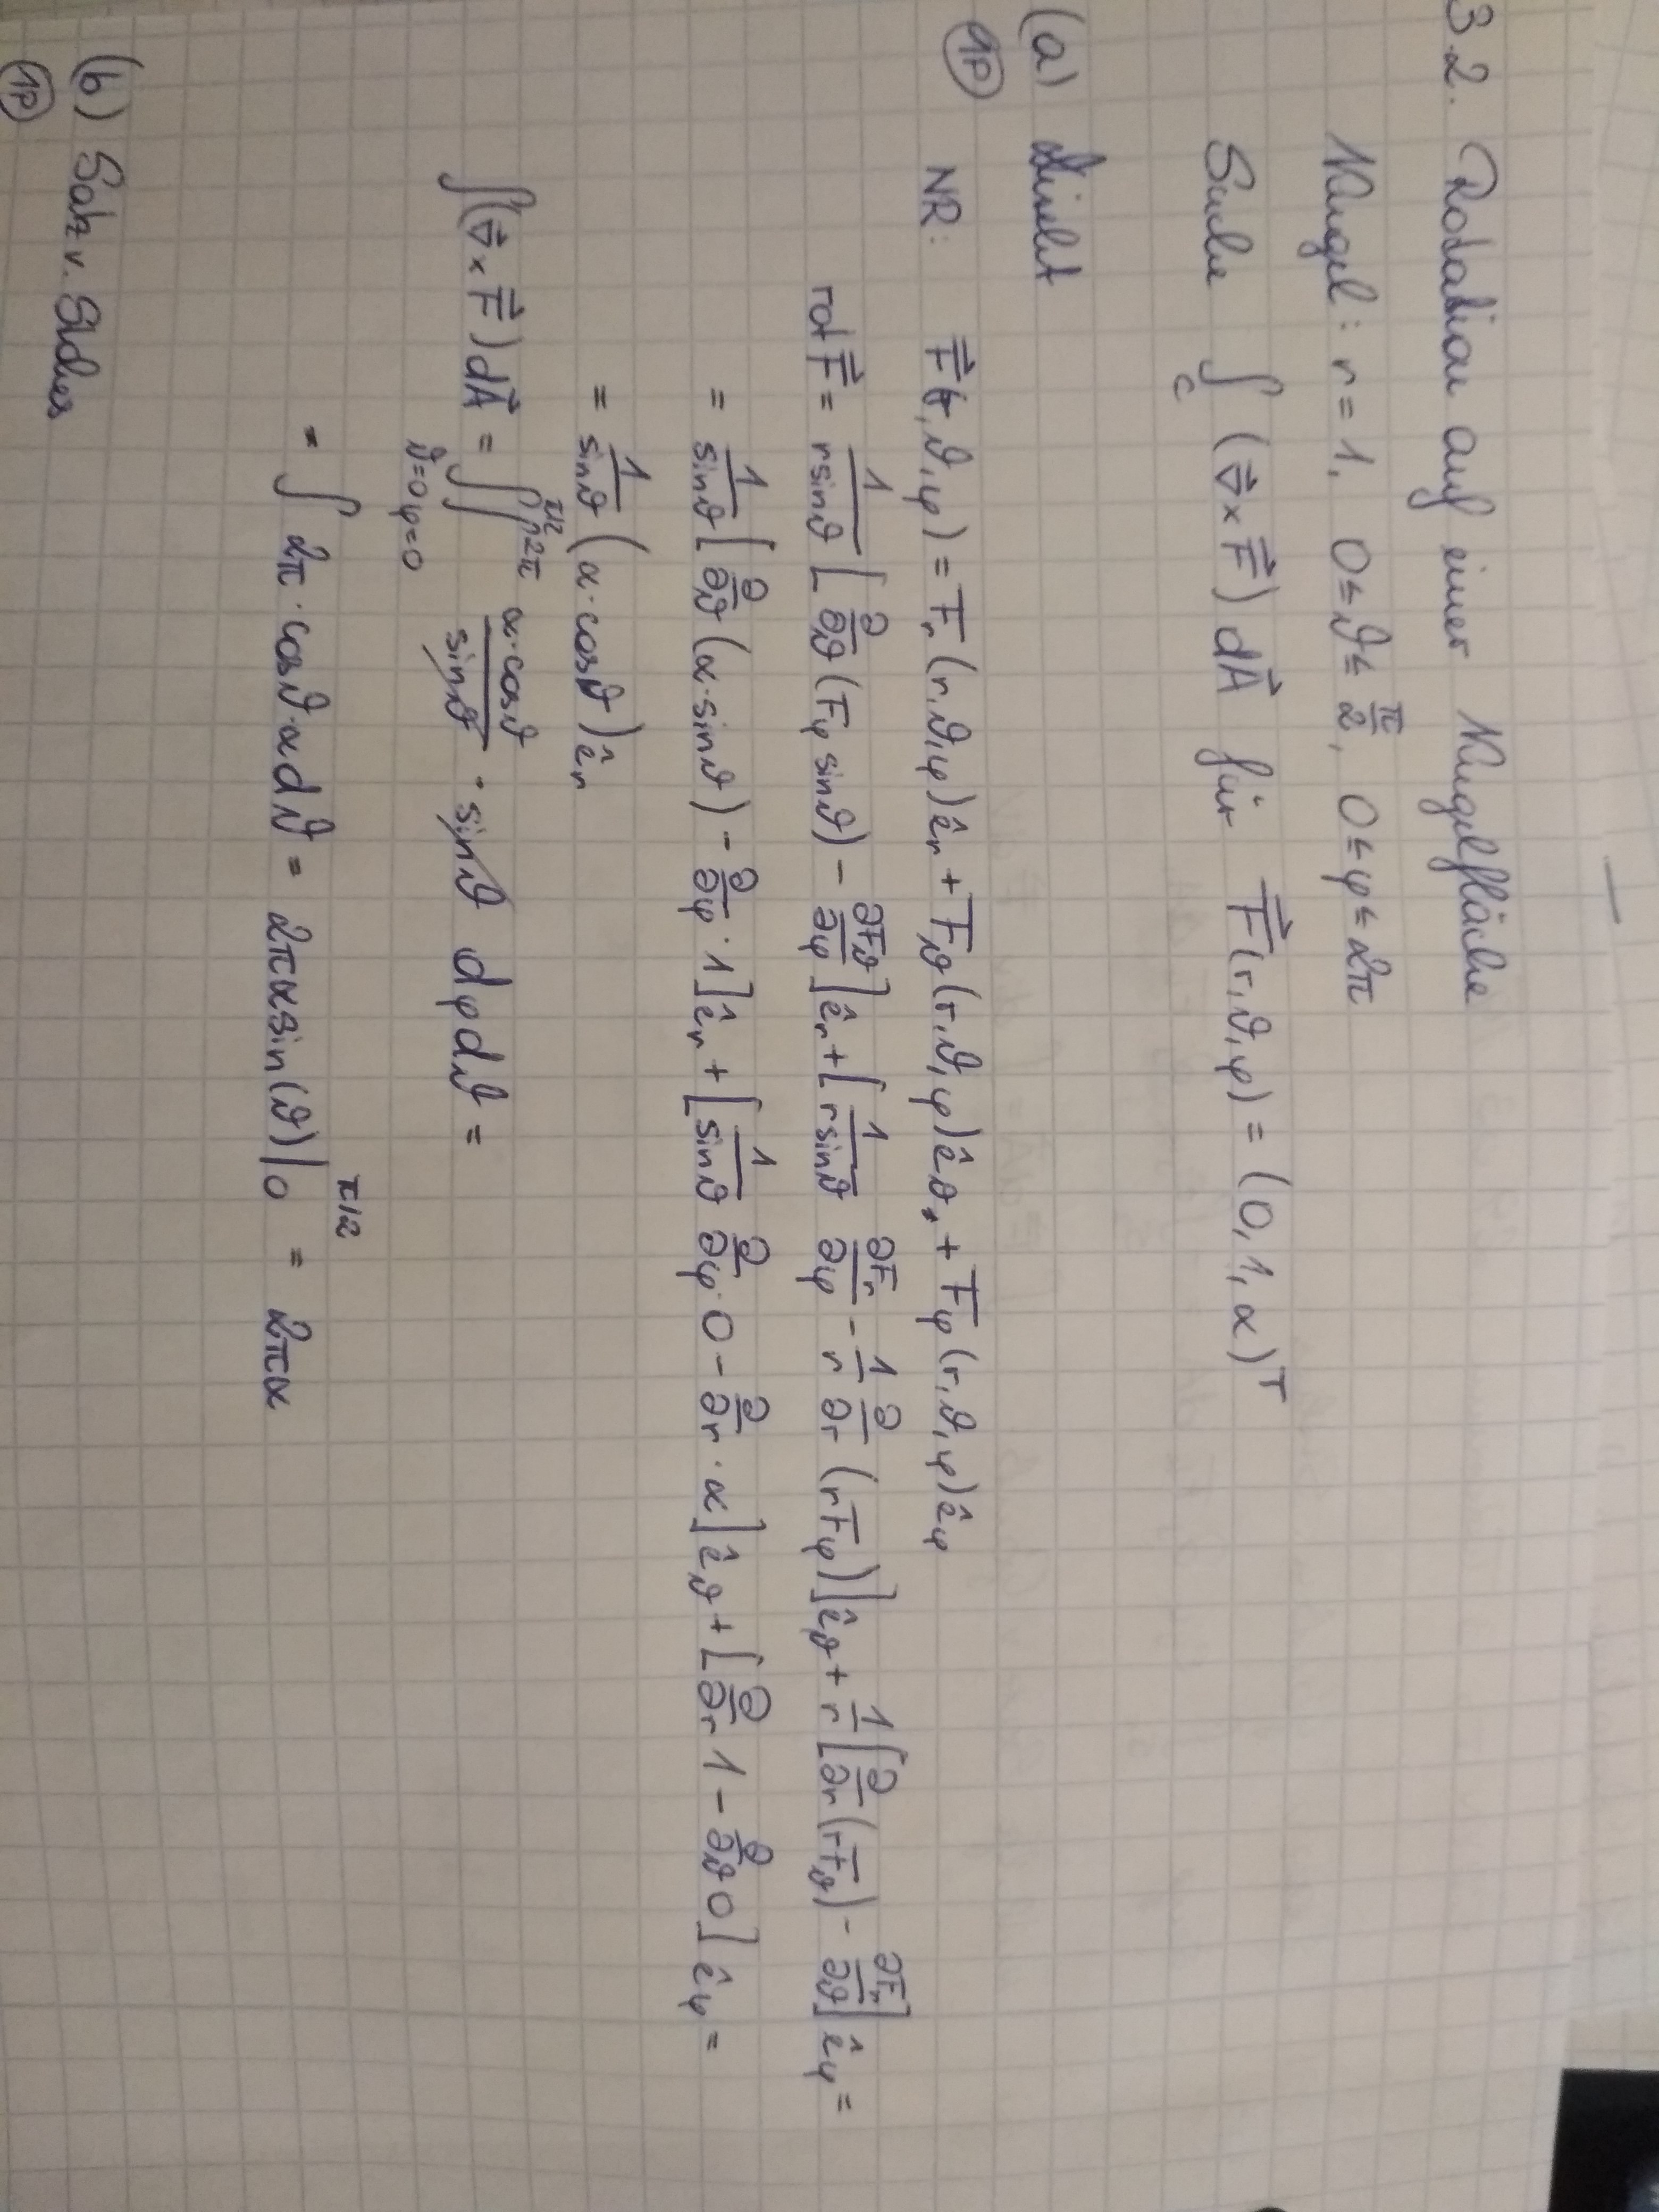 3.2. Rotation auf einer Kugelfläche
Kugel: r = 1, 0 ≤ ϑ ≤ π/2, 0 ≤ φ ≤ 2π
Suche ∫_C (∇⃗ × F⃗) dA⃗ für F⃗(r,ϑ,φ) = (0, 1, α)^T
(a) Direkt
1P
NR: F⃗(r,ϑ,φ) = F_r(r,ϑ,φ) ê_r + F_ϑ(r,ϑ,φ) ê_ϑ + F_φ(r,ϑ,φ) ê_φ
rot F⃗ = 1/(r sinϑ) [∂/∂ϑ (F_φ sinϑ) - ∂F_ϑ/∂φ] ê_r + [1/(r sinϑ) ∂F_r/∂φ - 1/r ∂/∂r (r F_φ)] ê_ϑ + 1/r [∂/∂r (r F_ϑ) - ∂F_r/∂ϑ] ê_φ =
= 1/sinϑ [∂/∂ϑ (α · sinϑ) - ∂/∂φ · 1] ê_r + [1/sinϑ ∂/∂φ · 0 - ∂/∂r · α] ê_ϑ + [∂/∂r 1 - ∂/∂ϑ 0] ê_φ =
= 1/sinϑ (α · cosϑ) ê_r
∫(∇⃗ × F⃗) dA⃗ = ∫_{ϑ=0}^{π/2} ∫_{φ=0}^{2π} (α · cosϑ)/sinϑ · sinϑ dφ dϑ =
= ∫ 2π · cosϑ · α dϑ = 2πα sin(ϑ) |_0^{π/2} = 2πα
(b) Satz v. Stokes
1P